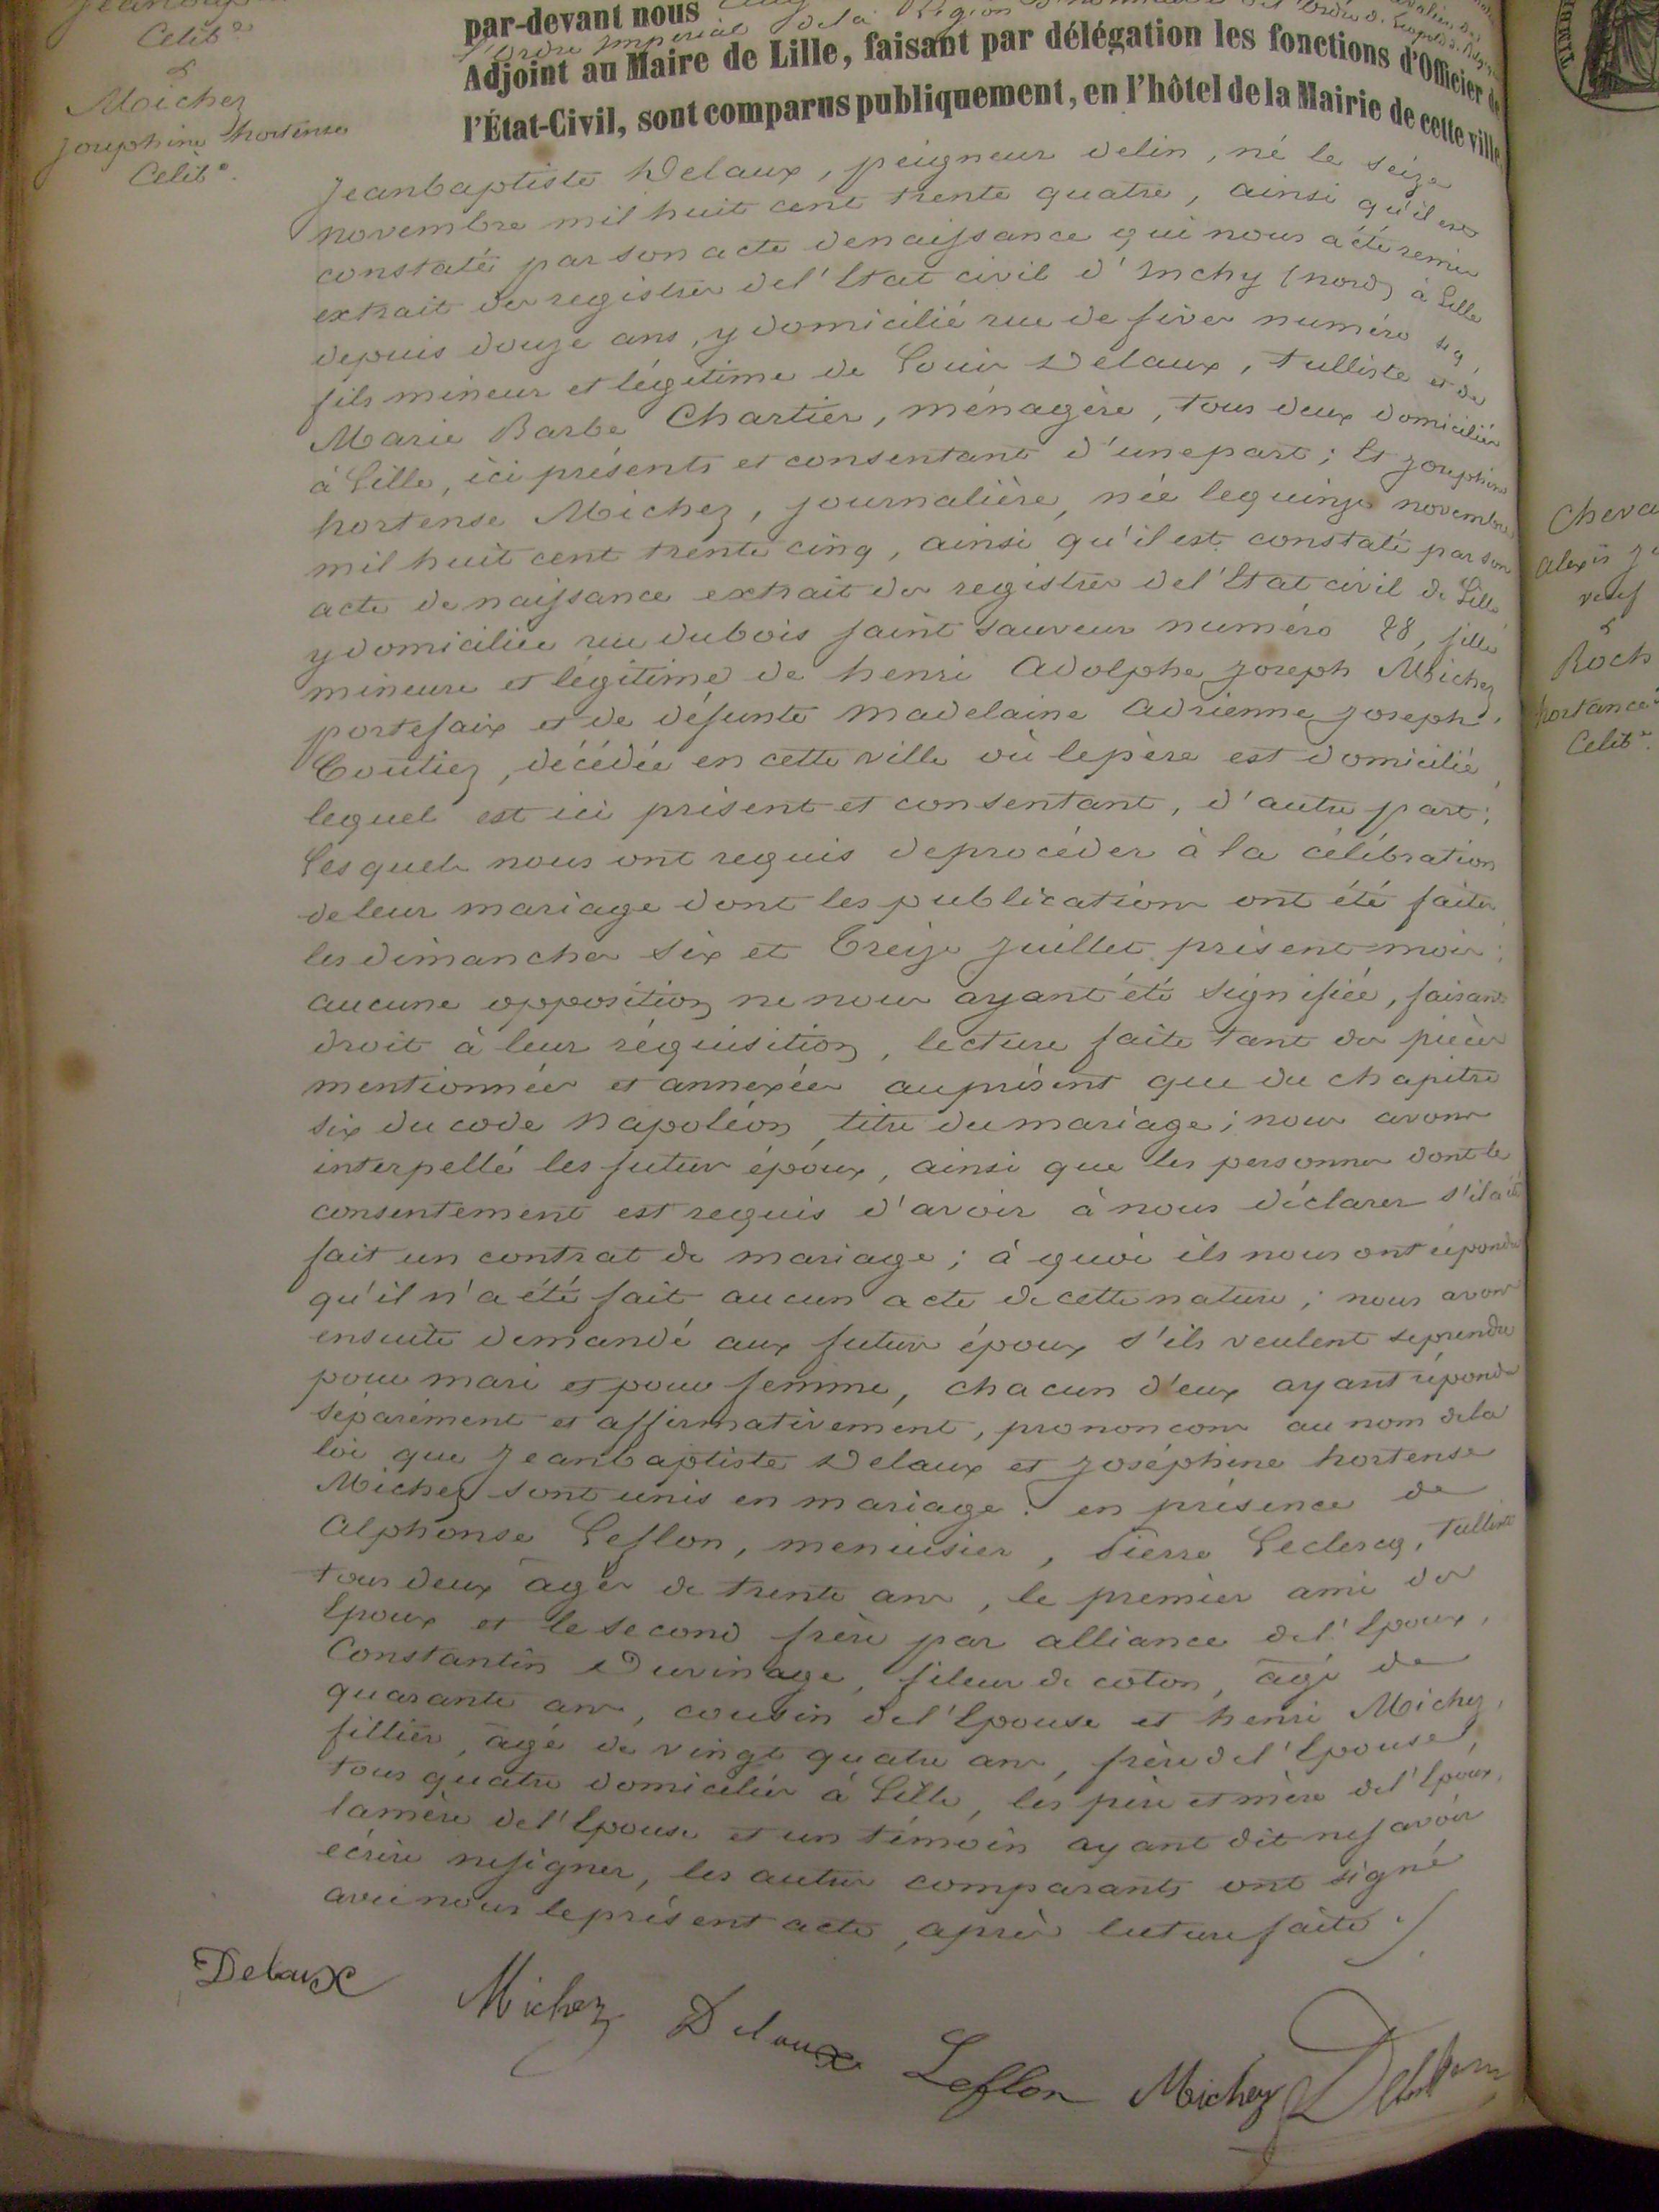 Celib.e
&
Michez
Josephine hortense
Celib.e
par-devant nous
l'Ordre Impérial de la Légion
Adjoint au Maire de Lille, faisant par délégation les fonctions d'Officier de
l'État-Civil, sont comparus publiquement, en l'hôtel de la Mairie de cette ville
Jeanbaptiste Delaux, peigneur delin, né le seize
novembre mil huit cent trente quatre, ainsi qu'il est
constaté par son acte denaissance qui nous a été remis
extrait des registres del'Etat civil d'Inchy (nord) à Lille
depuis douze ans, y domicilié rue de fives numéro
fils mineur et légitime de Louis Delaux, tulliste et de
Marie Barbe Chartier, ménagère, tous deux domiciliés
à Lille, ici présents et consentant d'unepart; Et Josephine
hortense Michez, journalière, née lequinze novembre
mil huit cent trente cinq, ainsi qu'il est constaté par son
acte denaissance extrait des registres del'Etat civil de Lille
y domiciliée rue dubois saint Sauveur numéro 28, fille
mineure et légitime de henri Adolphe Joseph Michez,
portefaix et de défunte Madelaine Adrienne Joseph
Coutiez, décédée en cette ville où lepère est domicilié,
lequel est ici présent et consentant, d'autre part;
Lesquels nous ont requis deprocéder à la célébration
deleur mariage dont les publications ont été faites
les dimanches six et Treize Juillet présent mois;
aucune opposition ne nous ayant été signifiée, faisant
droit à leur réquisition, lecture faite tant des pièces
mentionnées et annexées auprésent que du chapitre
six du code Napoléon, titre dumariage; nous avons
interpellé les futurs époux, ainsi que les personnes dont le
consentement est requis d'avoir à nous déclarer s'il a été
fait un contrat de mariage; à quoi ils nous ont répondu
qu'il n'a été fait aucun acte de cette nature; nous avons
ensuite demandé aux futurs époux s'ils veulent seprendre
pour mari et pour femme, chacun d'eux ayant répondu
séparément et affirmativement, prononcons au nom dela
loi que Jeanbaptiste Delaux et Joséphine hortense
Michez sont unis en mariage: en présence de
Alphonse Leflon, menuisier, Pierre Leclercq, tulliste
tous deux âgés de trente ans, le premier ami des
Epoux et le second frère par alliance del'Epoux,
Constantin Duvinage, fileur de coton, âgé de
quarante ans, cousin del'Epouse et henri Michez,
filtier, âgé de vingt quatre ans, frère del'Epouse,
tous quatre domiciliés à Lille, les père et mère del'Epoux,
lamère del'Epouse et un témoin ayant dit nesavoir
écrire nesigner, les autres comparants ont signé
avec nous leprésent acte, après lecture faite ./.
Delaux
Michez
Delaux
Leflon
Michez
Cheva
Alexis
veuf
&
Roch
hortance
Celib.e